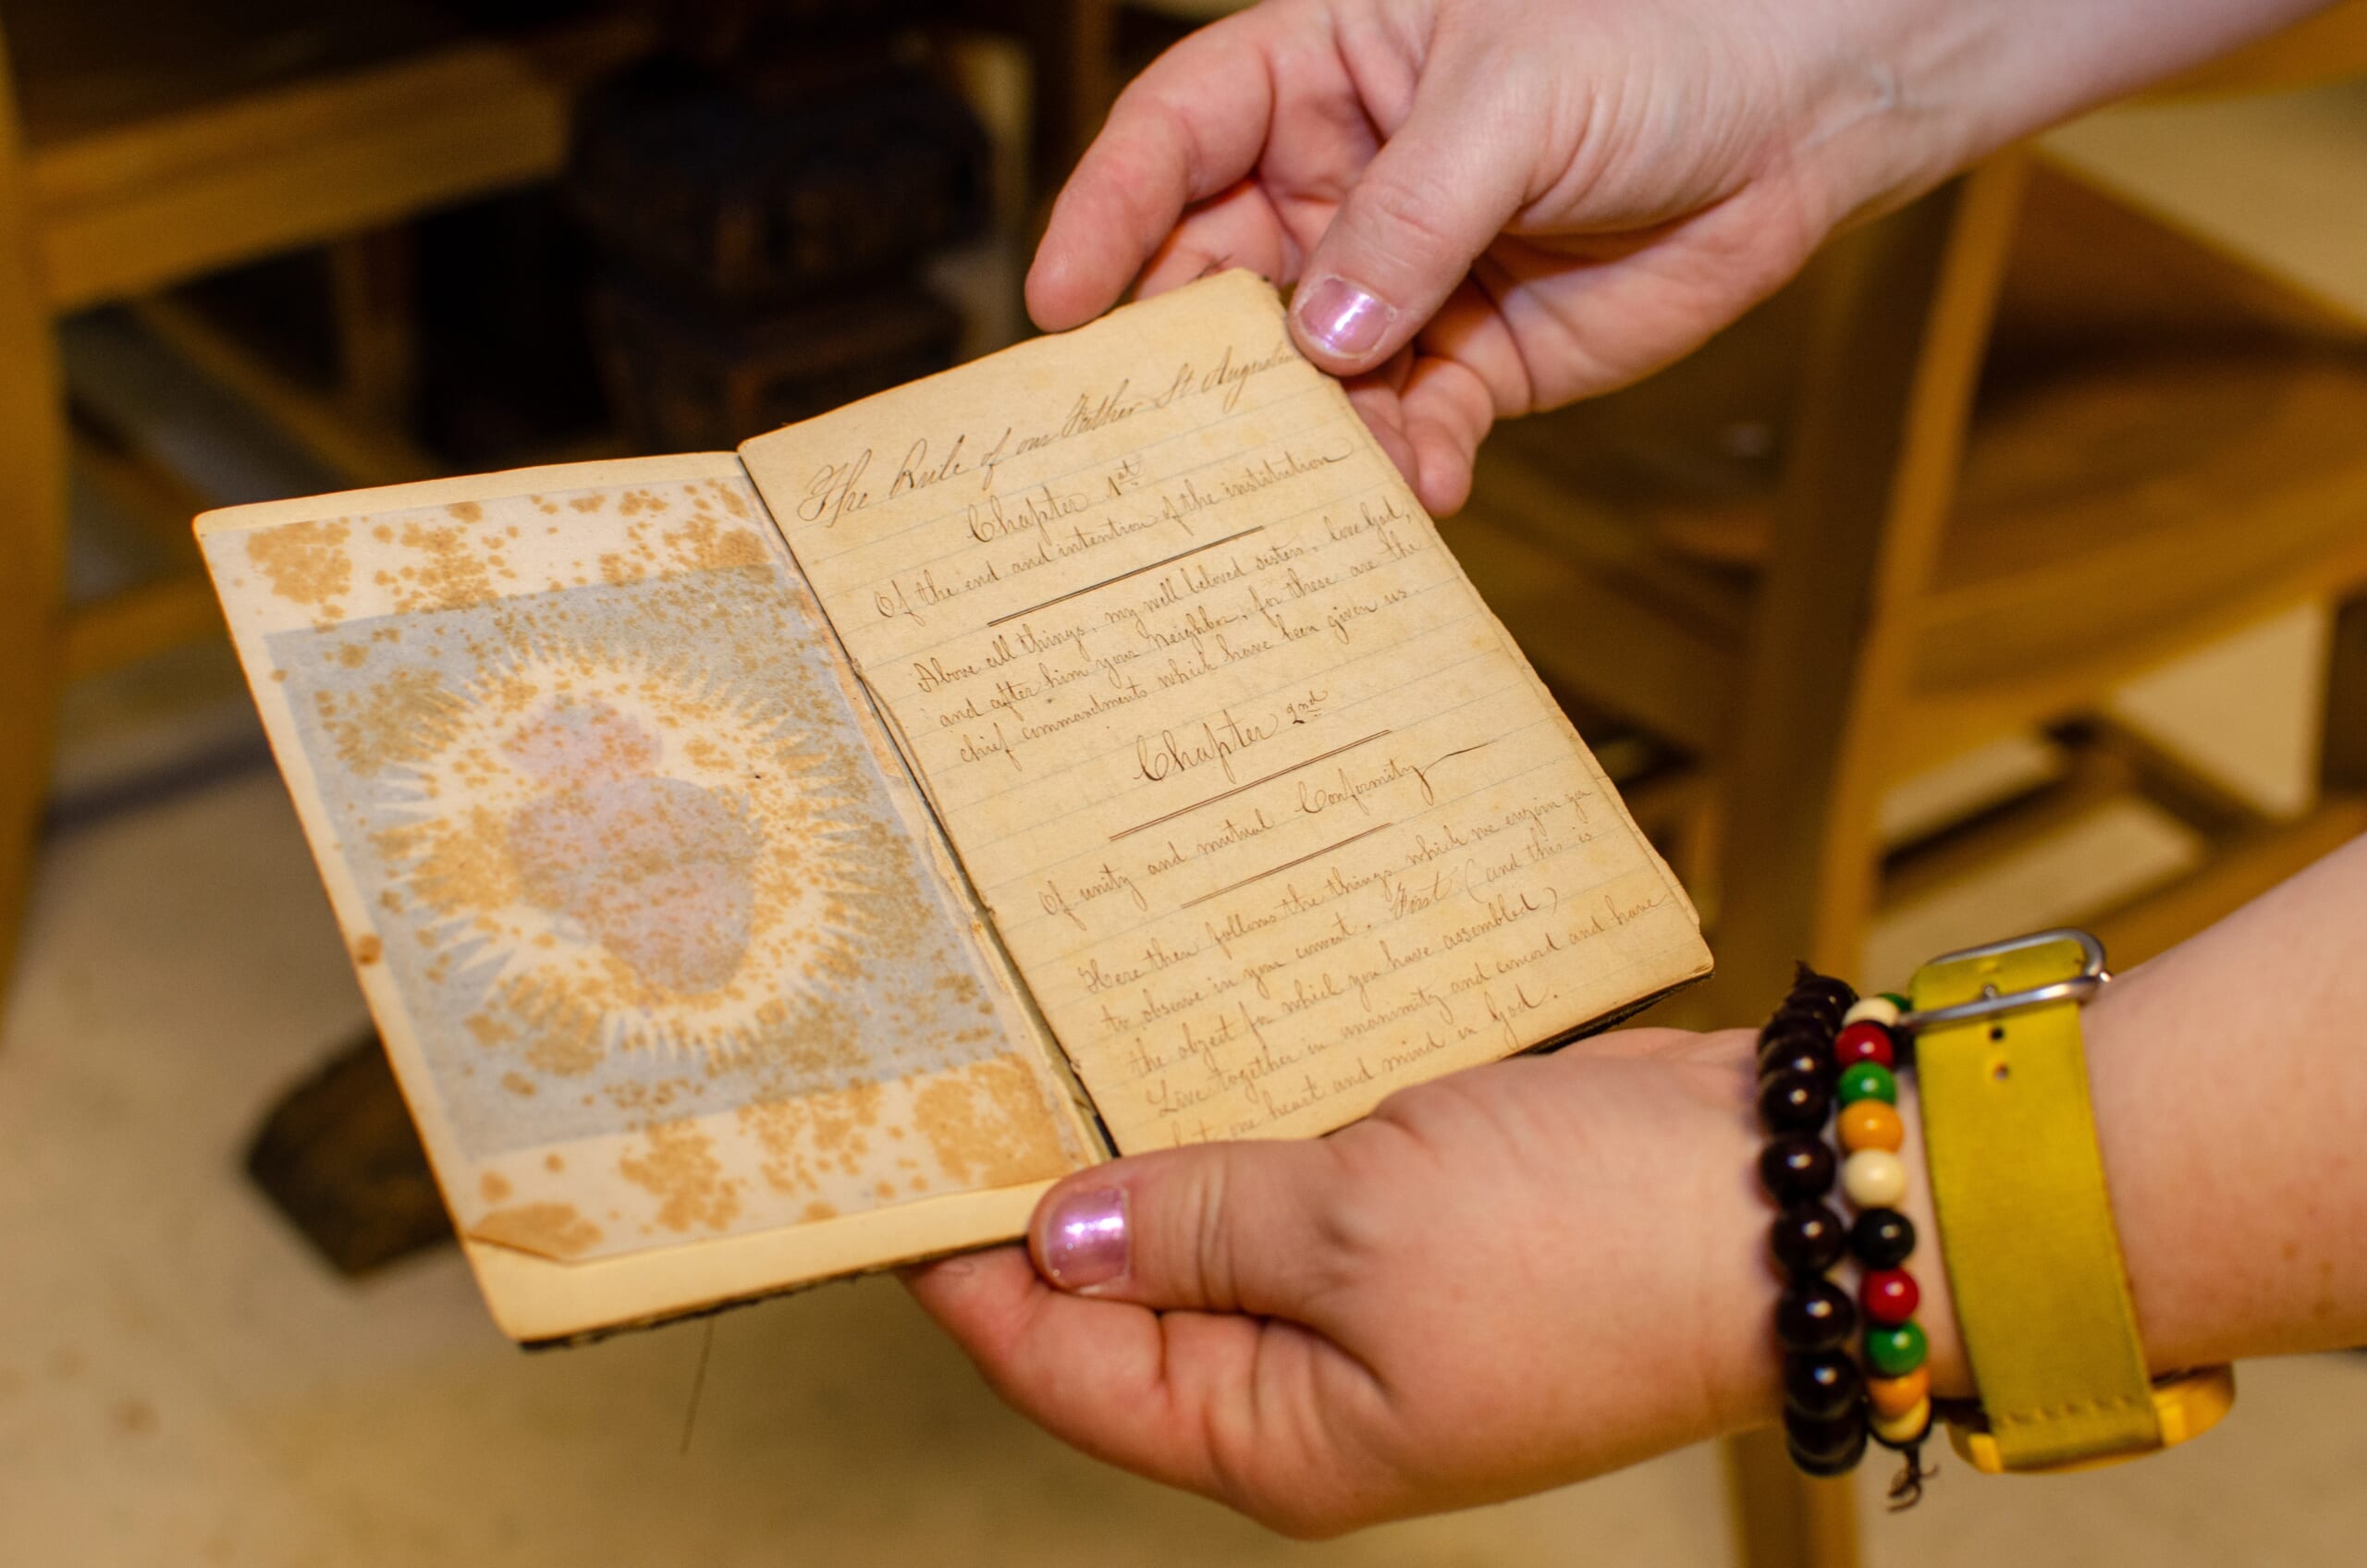 The Rule of our Father St Augustin
Chapter 1st
Of the end and intention of the institution
Above all things, my well beloved sisters, love God,
and after him your Neighbor, for these are the
chief commandments which have been given us.
Chapter 2nd
Of unity and mutual Conformity
Here then follows the things which we enjoin you
to observe in your convent. First (and this is
the object for which you have assembled)
Live together in unanimity and concord and have
but one heart and mind in God.